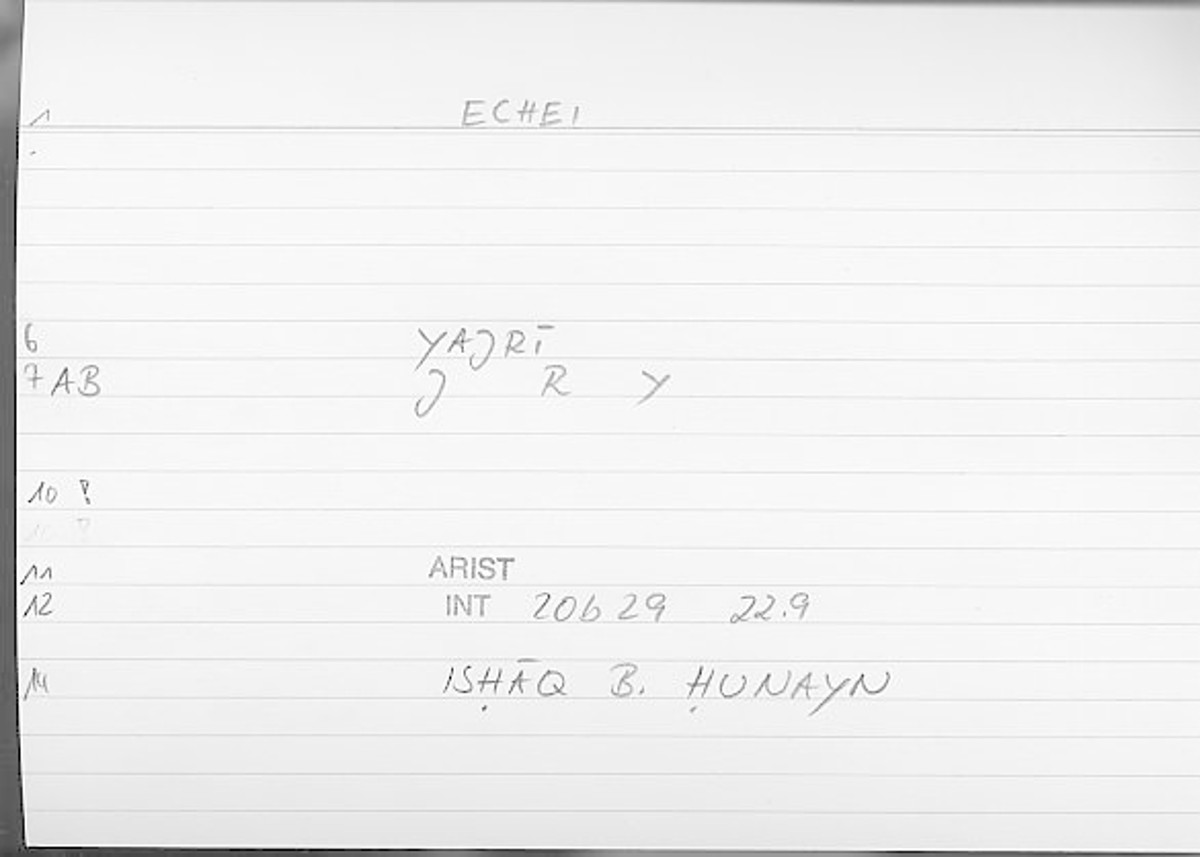 1 ECHEI
6 YAJRĪ
7 AB J R Y
10 !
11 ARIST
12 INT 20b 29 22.9
14 ISḤĀQ B. ḤUNAYN